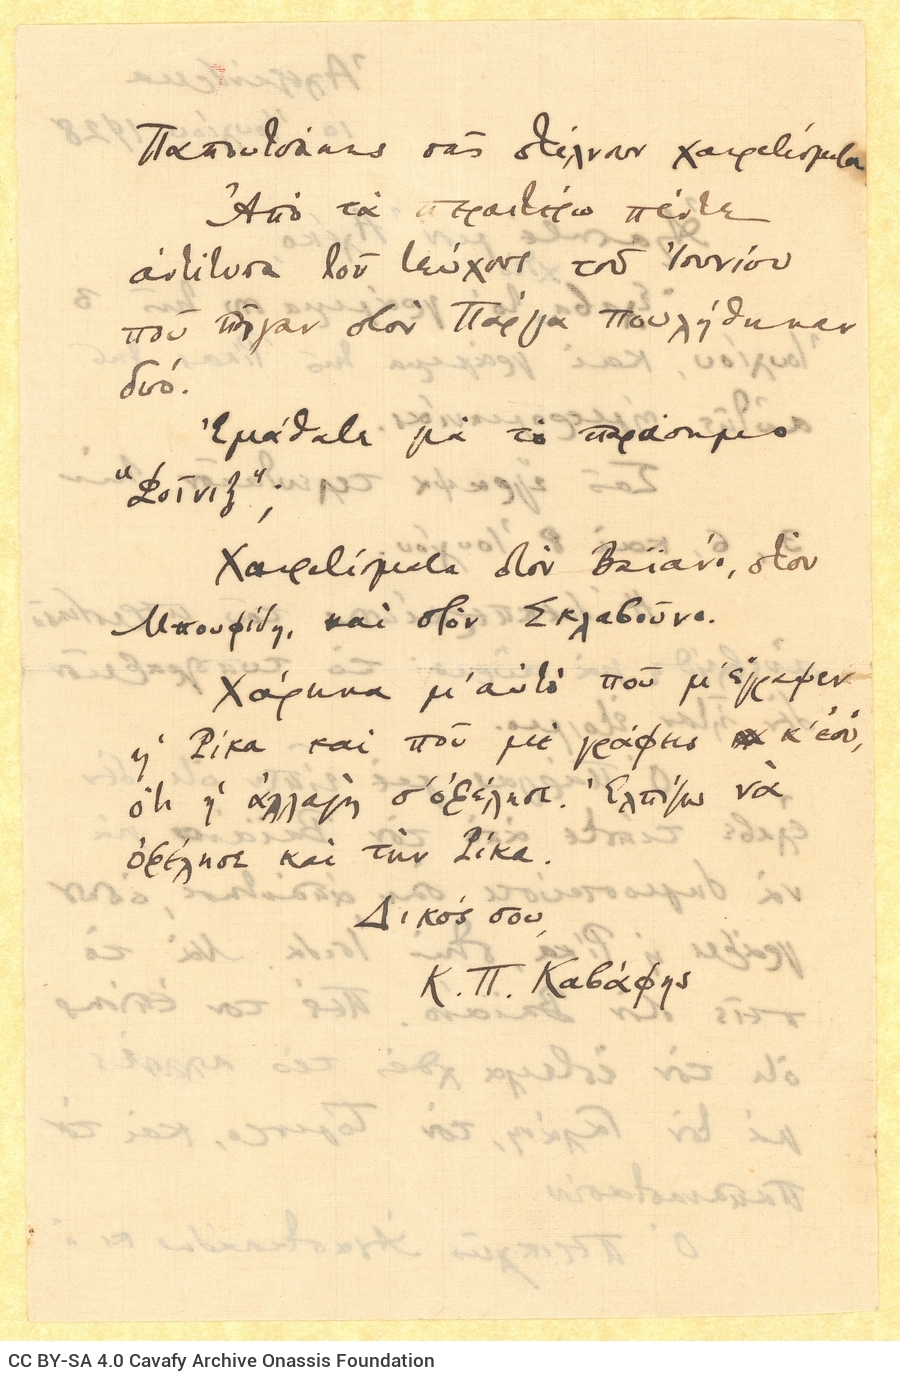 Παπουτσάκης σᾶς στέλνουν χαιρετίσματα
Ἀπὸ τὰ περαιτέρω πέντε
ἀντίτυπα τοῦ τεύχους τοῦ Ἰουνίου
ποῦ πῆγαν στὸν Πάργα πουλήθηκαν
δυό.
Ἐμάθατε γιὰ τὸ παράσημο
"Φοῖνιξ";
Χαιρετίσματα στὸν Βαϊάνο, στὸν
Μπουφίδη, καὶ στὸν Σκλαβοῦνο.
Χάρηκα μ' αὐτὸ ποῦ μ' ἔγραψεν
ἡ Ρίκα καὶ ποῦ μὲ γράφεις κ' ἐσύ,
ὅτι ἡ ἀλλαγὴ σ' ὀφέλησε. Ἐλπίζω νὰ
ὀφέλησε καὶ τὴν Ρίκα.
Δικός σου,
Κ. Π. Καβάφης
CC BY-SA 4.0 Cavafy Archive Onassis Foundation